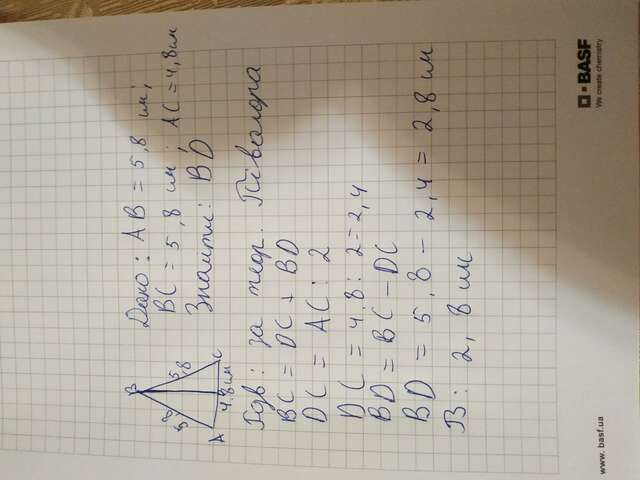 Дано: AB = 5,8 см;
BC = 5,8 см; AC = 4,8 см
Знайти: BD
B
5,8
5,8
A
C
4.8 см
за теор. Піфагора
BC = DC + BD
DC = AC : 2
DC = 4.8 : 2 = 2,4
BD = BC - DC
BD = 5,8 - 2,4 = 2,8 см
В: 2,8 см
BASF
We create chemistry
www.basf.ua